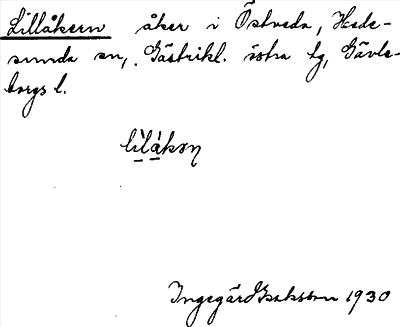 Lillåkern åker i Östveda, Hede-
sunda sn, Gästrikl. östra tg, Gävle-
borgs l.
lìlákəɳ
Ingegärd Isaksson 1930